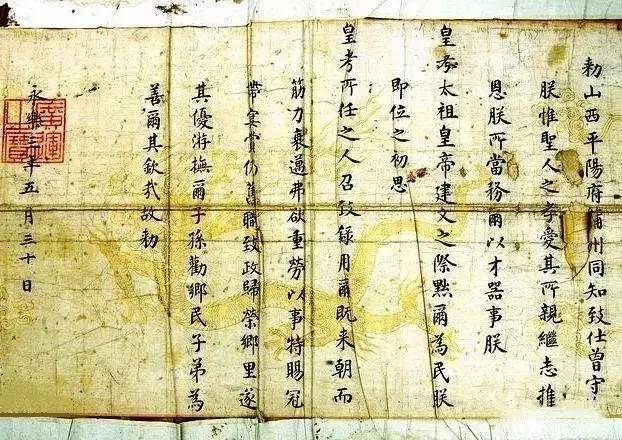 勑山西平陽府蒲州同知致仕曾守
朕惟聖人之孝愛其所親繼志推
恩朕所當務爾以才器事朕
皇考太祖皇帝建文之際黜爾為民朕
即位之初思
皇考所任之人召致錄用爾既来朝而
筋力衰邁弗欲重勞以事特賜冠
帶宴賚仍舊職致政歸榮鄉里遂
其優游撫爾子孫勸鄉民子弟為
善爾其欽哉故勑
永樂三年五月三十日
廣運之寶